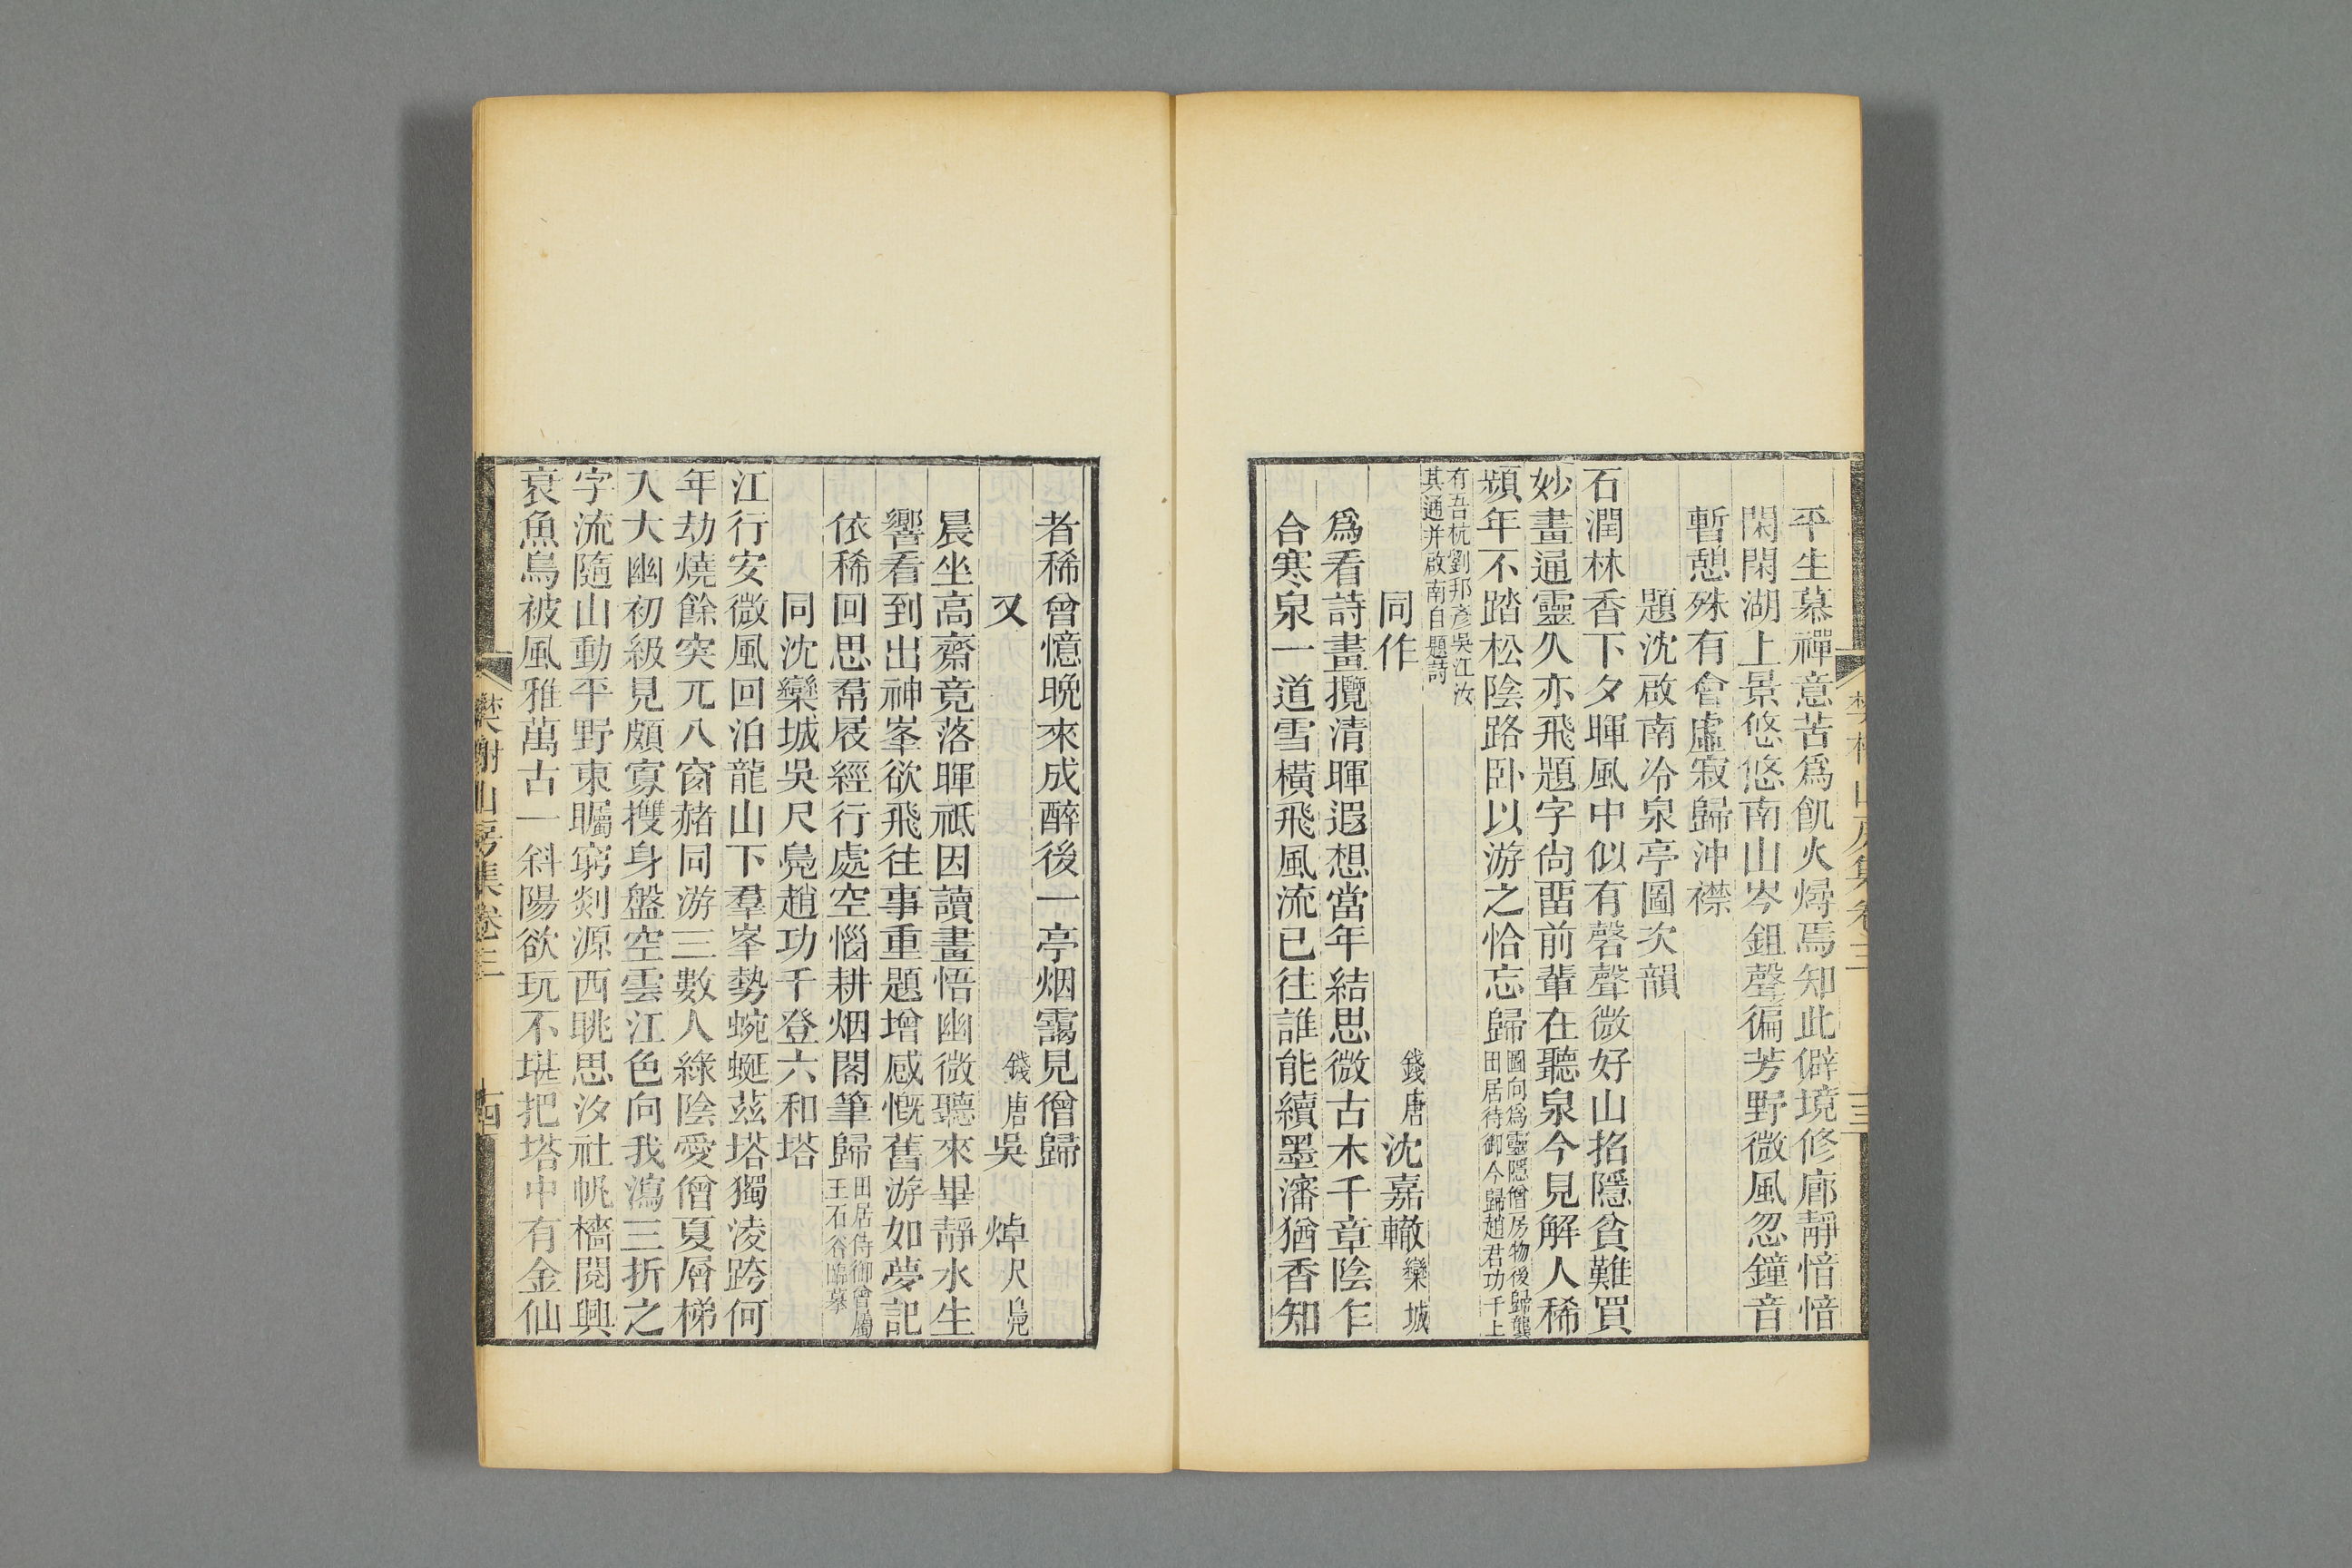 平生慕禪意苦爲飢火燖焉知此僻境修廊靜愔愔
閑閑湖上景悠悠南山岑鉏聲徧芳野微風忽鐘音
暫憩殊有會虛寂歸沖襟
題沈啟南冷泉亭圖次韻
石潤林香下夕暉風中似有磬聲微好山招隱貧難買
妙畫通靈久亦飛題字尙畱前輩在聽泉今見解人稀
頻年不踏松陰路卧以游之恰忘歸圖向爲靈隱僧房物後歸龔
田居待御今歸趙君功千上
有吾杭劉邦彥吳江汝
其通并啟南自題詩
同作 錢唐沈嘉轍欒城
爲看詩畫攬清暉遐想當年結思微古木千章陰乍
合寒泉一道雪橫飛風流已往誰能續墨瀋猶香知
者稀曾憶晩來成醉後一亭烟靄見僧歸
又 錢唐吳焯尺鳧
晨坐高齋竟落暉祇因讀畫悟幽微聽來畢靜水生
響看到出神峯欲飛往事重題增感慨舊游如夢記
依稀回思羣屐經行處空惱耕烟閣筆歸田居侍御曾屬
王石谷臨摹
同沈欒城吳尺鳧趙功千登六和塔
江行安微風回泊龍山下羣峯勢蜿蜒茲塔獨淩跨何
年劫燒餘突兀八窗赭同游三數人綠陰愛僧夏層梯
入大幽初級見頗寡擭身盤空雲江色向我瀉三折之
字流隨山動平野東矚窮剡源西眺思汐社帆檣閱興
衰魚鳥被風雅萬古一斜陽欲玩不堪把塔中有金仙
樊榭山房集卷三 十四